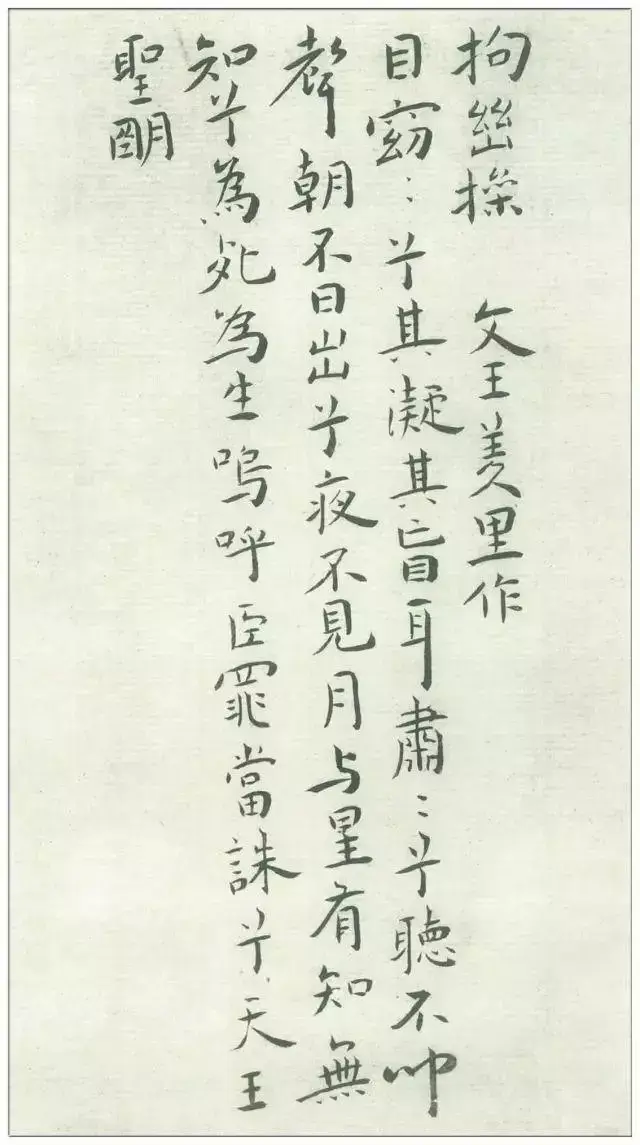 拘幽操　文王羑里作
目窈〻兮其凝其盲耳肅〻兮聽不聞
聲朝不日出兮夜不見月与星有知無
知兮為死為生嗚呼臣罪當誅兮天王
聖朙